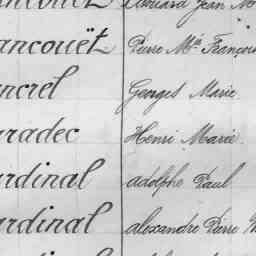 ancouët Pierre Mie François
ncrel Georges Marie
radec Henri Marie
rdinal adolphe Paul
rdinal alexandre Pierre M